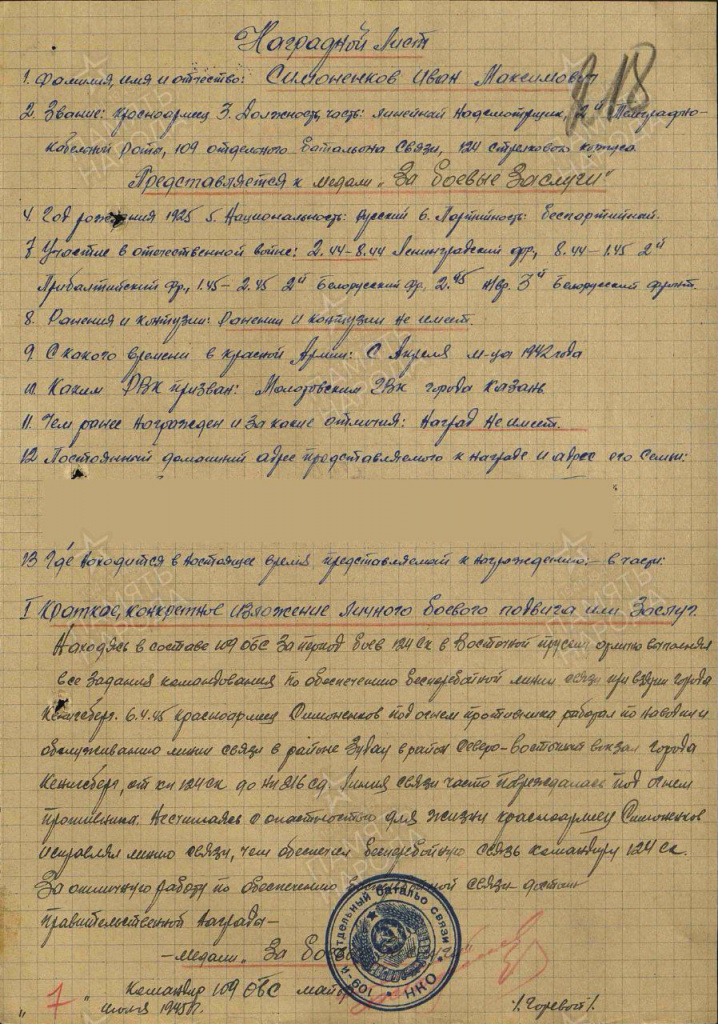 Наградной Лист
218
1. Фамилия, имя и отчество: Симоненков Иван Максимович
2. Звание: красноармеец 3. Должность, часть: Линейный Надсмотрщик, 2й Телеграфно-
кабельной роты, 109 отдельного батальона связи, 124 стрелкового корпуса
Представляется к медали „За Боевые Заслуги"
4. Год рождения 1925 5. Национальность: русский 6. Партийность: Беспартийный.
7 Участие в отечественной войне: 2.44-8.44 Ленинградский фр, 8.44-1.45 2й
Прибалтийский фр, 1.45-2.45 2й Белорусский фр, 2.45 3й Белорусский фронт.
8. Ранения и контузии: Ранений и контузии не имеет.
9. С какого времени в красной Армии: С Апреля м-ца 1942 года
10. Каким РВК призван: Молотовским РВК города Казань
11. Чем ранее награжден и за какие отличия: Наград не имеет.
12 Постоянный домашний адрес представляемого к награде и адрес его семьи:
13 Где находится в настоящее время представляемый к награждению:- в части.
I Краткое, конкретное изложение личного боевого подвига или Заслуг.
Находясь в составе 109 ОБС За период боев 124 ск в Восточной Пруссии отлично выполнял
все задания командования по обеспечению бесперебойной линии связи при взятии города
Кенигсберг. 6.4.45 красноармеец Симоненков под огнем противника работал по наводке и
обслуживанию линии связи в районе в район Северо-Восточный вокзал города
Кенигсберг, от кп 124 ск до нп 216 сд. Линия связи часто повреждалась под огнем
противника. Не считаясь с опастностью для жизни красноармеец Симоненков
исправлял линию связи, чем обеспечил бесперебойную связь командиру 124 ск.
За отличную работу по обеспечению связи достоин
правительственной награды-
-медали „За Боевые
Командир 109 ОБС майор
„ 7 " июня 1945 г. /Горевой/.
109-й отдельный батальон связи * НКО *
ПАМЯТЬ НАРОДА